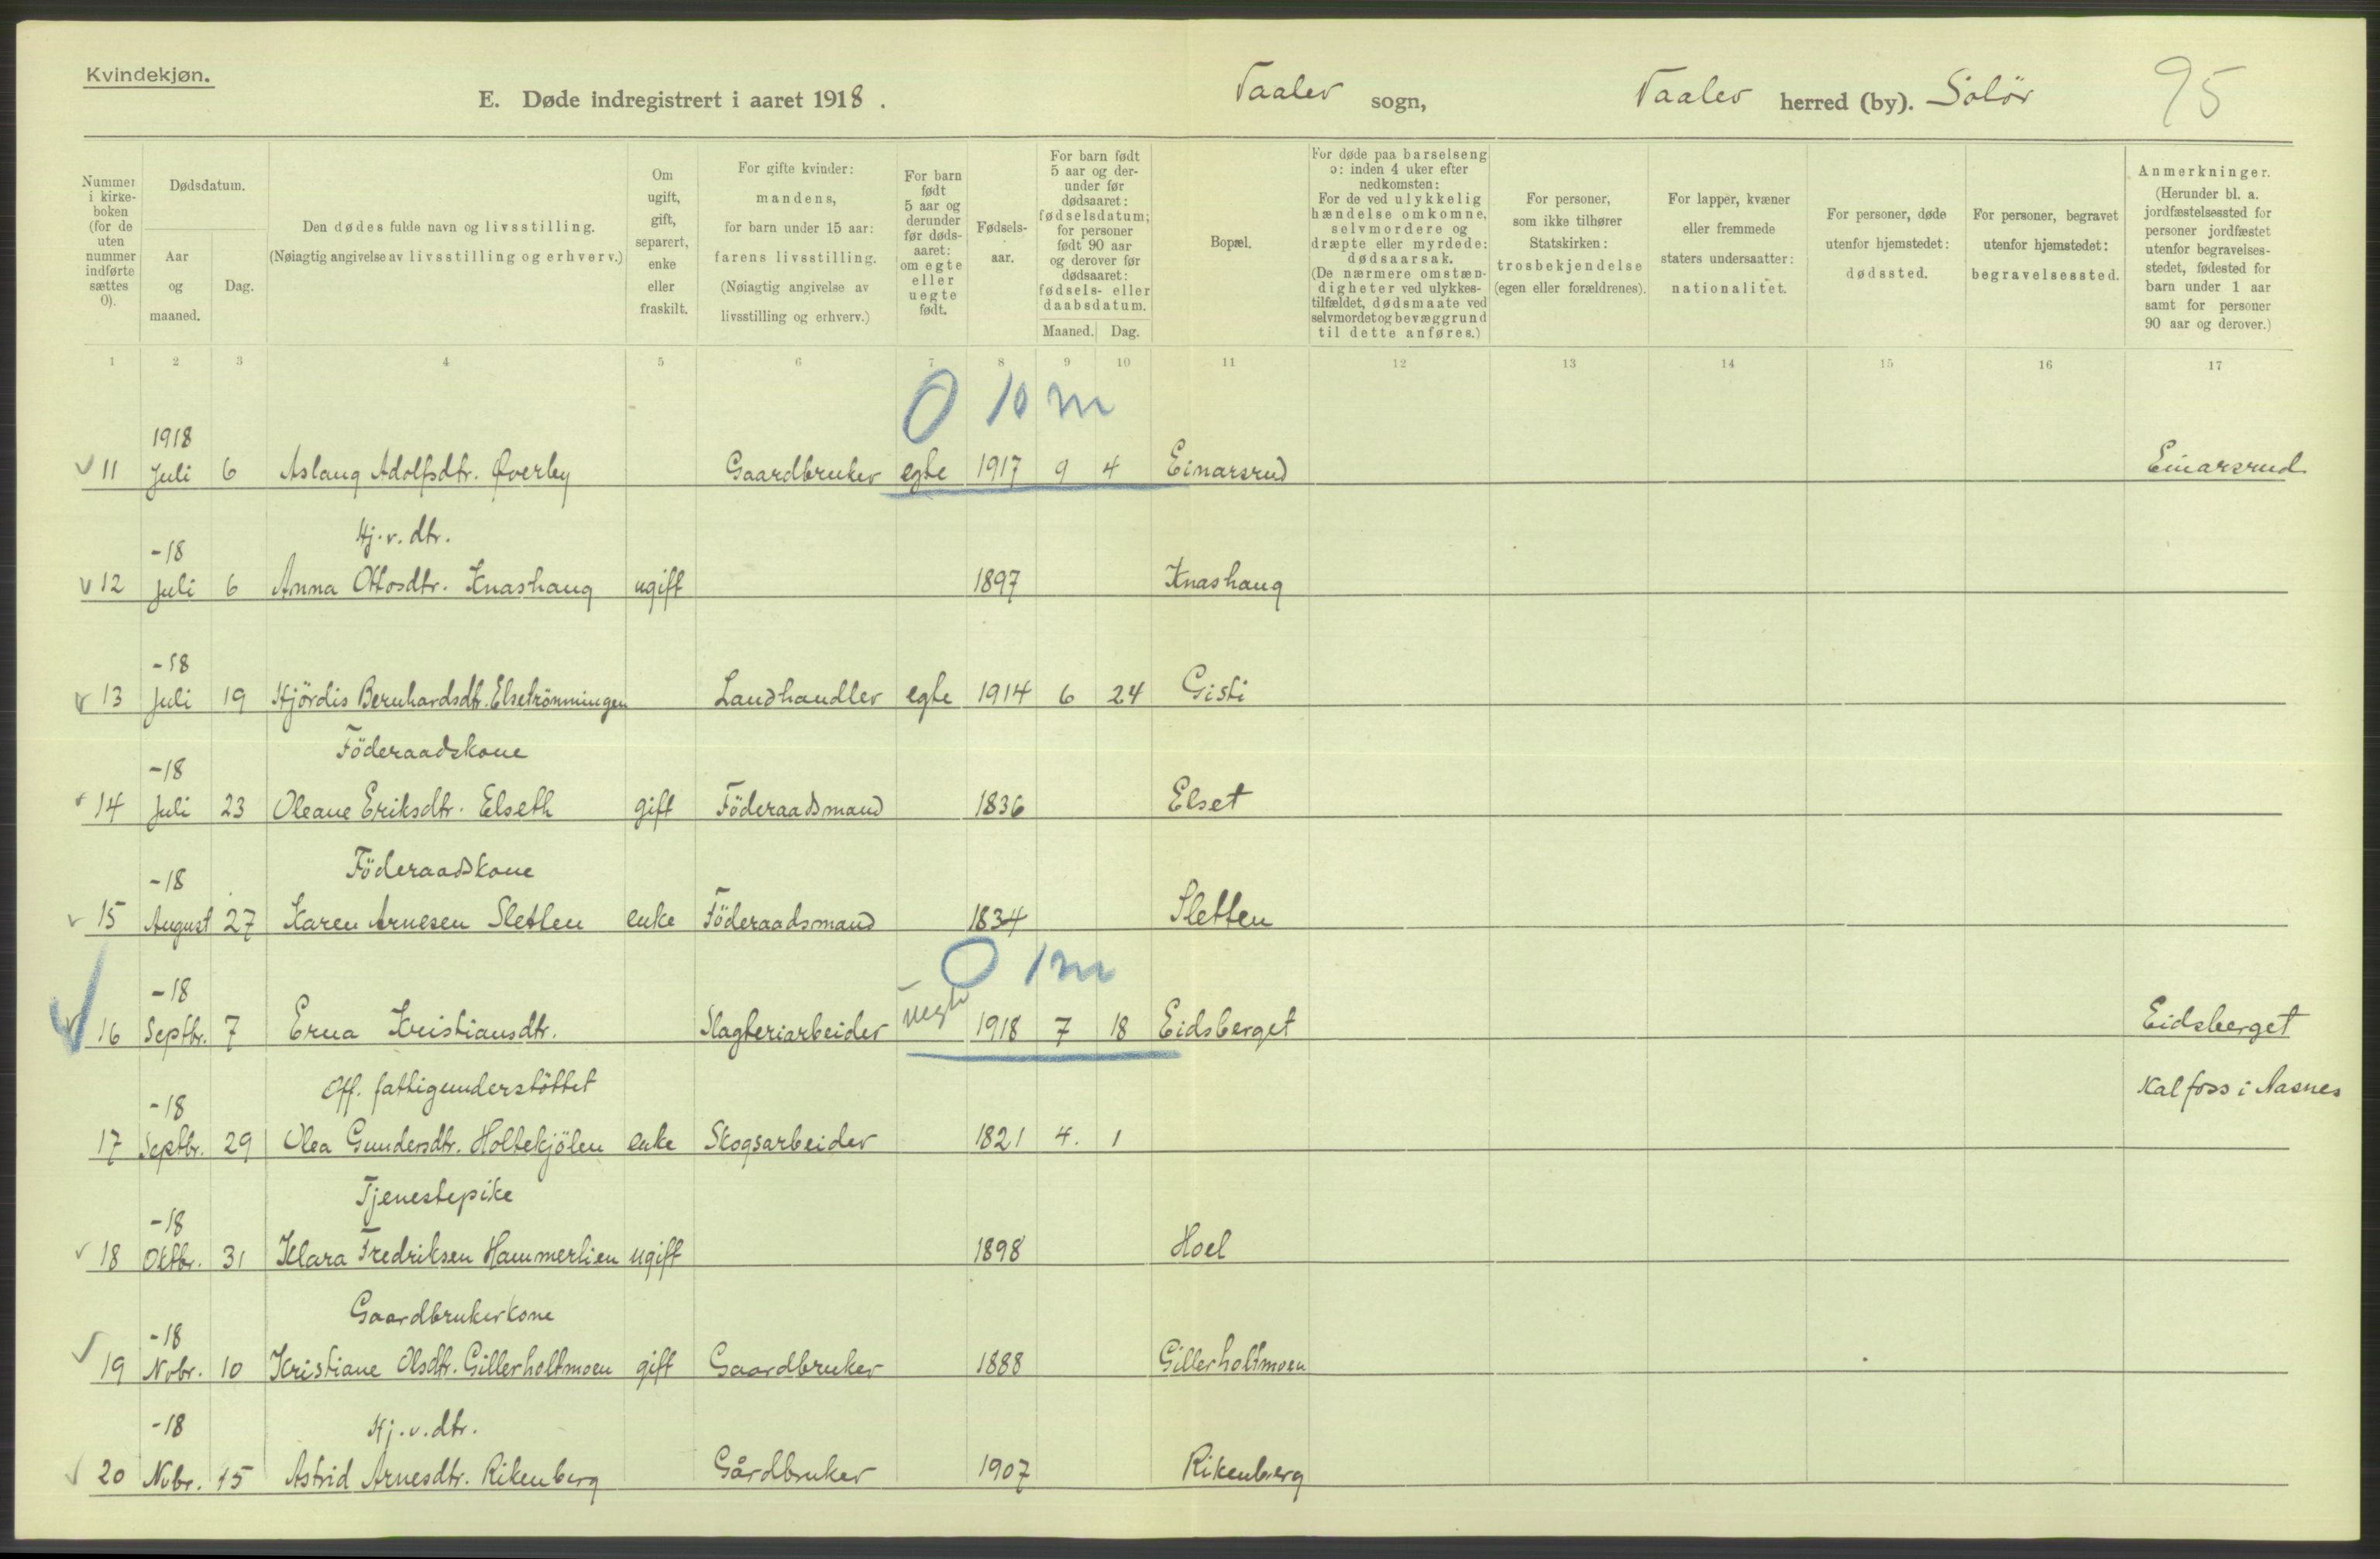 Kvindekjøn.
E. Døde indregistrert i aaret 1918.
Vaaler sogn,
Vaaler herred (by). Solör
95
Nummer i kirke-boken (for de uten nummer indførte sættes 0).
Dødsdatum.
Aar og maaned.
Dag.
Den dødes fulde navn og livsstilling.
(Nøiagtig angivelse av livsstilling og erhverv.)
Om ugift, gift, separert, enke eller fraskilt.
For gifte kvinder: mandens, for barn under 15 aar: farens livsstilling. (Nøiagtig angivelse av livsstilling og erhverv.)
For barn født 5 aar og derunder før døds-aaret: om egte eller uegte født.
Fødsels-aar.
For barn født 5 aar og der-under før dødsaaret: fødselsdatum; for personer født 90 aar og derover før dødsaaret: fødsels- eller daabsdatum.
Maaned. Dag.
Bopæl.
For døde paa barselseng ɔ: inden 4 uker efter nedkomsten: For de ved ulykkelig hændelse omkomne, selvmordere og dræpte eller myrdede: dødsaarsak. (De nærmere omstæn-digheter ved ulykkes-tilfældet, dødsmaate ved selvmordet og bevæggrund til dette anføres.)
For personer, som ikke tilhører Statskirken: trosbekjendelse (egen eller forældrenes).
For lapper, kvæner eller fremmede staters undersaatter: nationalitet.
For personer, døde utenfor hjemstedet: dødssted.
For personer, begravet utenfor hjemstedet: begravelsessted.
Anmerkninger. (Herunder bl. a. jordfæstelsessted for personer jordfæstet utenfor begravelses-stedet, fødested for barn under 1 aar samt for personer 90 aar og derover.)
1 2 3 4 5 6 7 8 9 10 11 12 13 14 15 16 17
0 10 m
1918
11 Juli 6 Aslaug Adolfsdtr. Øverby Gaardbruker egte 1917 9 4 Einarsrud Einarsrud
-18 Hj.v.dtr.
12 Juli 6 Anna Ottosdtr. Knashaug ugift 1897 Knashaug
-18
13 Juli 19 Hjördis Bernhardsdtr. Elsetrönningen Landhandler egte 1914 6 24 Gisti
Föderaadskone
-18
14 Juli 23 Oleane Eriksdtr. Elseth gift Föderaadsmand 1836 Elset
-18 Föderaadskone
15 August 27 Karen Arnesen Sletten enke Föderaadsmand 1834 Sletten
0 1 m
-18
16 Septbr. 7 Erna Kristiansdtr. Slagteriarbeider uegte 1918 7 18 Eidsberget Eidsberget
-18 Off. fattigunderstöttet Kalfoss i Aasnes
17 Septbr. 29 Olea Gundersdtr. Holtekjölen enke Skogsarbeider 1821 4. 1
-18 Tjenestepike
18 Oktbr. 31 Klara Fredriksen Hammerlien ugift 1898 Hoel
-18 Gaardbrukerkone
19 Nobr. 10 Kristiane Olsdtr. Gillerholtmoen gift Gaardbruker 1888 Gillerholtmoen
-18 Hj.v.dtr.
20 Nobr. 15 Astrid Arnesdtr. Rikenberg Gårdbruker 1907 Rikenberg